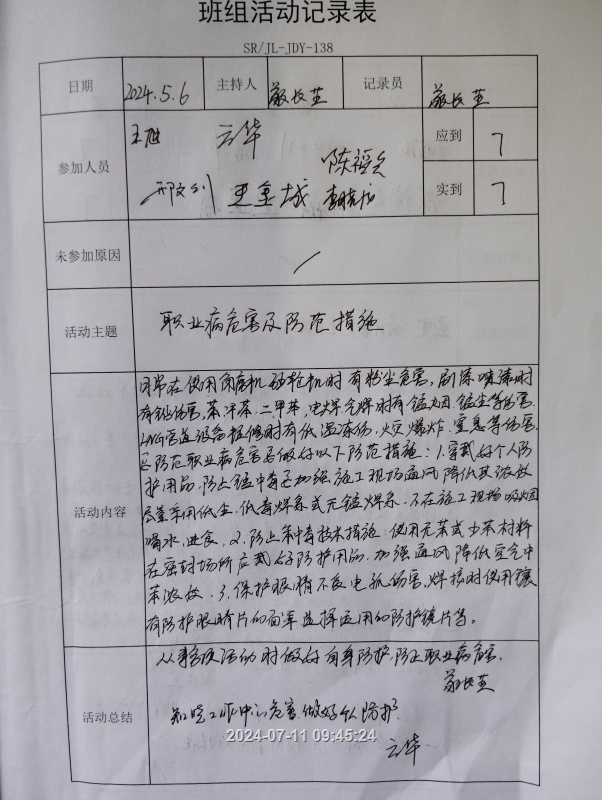 班组活动记录表
SR/JL-JDY-138
日期 2024.5.6 主持人 记录员
参加人员 云华 应到 7
实到 7
未参加原因 /
活动主题 职业病危害及防范措施
活动内容
日常在使用角磨机 砂轮机时有粉尘危害, 刷漆喷漆时
有铅伤害, 苯、二甲苯, 电焊气焊时有锰烟 锰尘等伤害.
LNG管道设备抢修时有低温冻伤、火灾、爆炸、窒息等伤害
防范职业病危害 做好以下防范措施: 1. 穿戴好个人防
护用品, 防止锰中毒 加强施工现场通风 降低其浓度
尽量采用低尘、低毒焊条或无锰焊条. 不在施工现场吸烟
喝水、进食. 2、防止苯中毒技术措施. 使用无苯或少苯材料
在密封场所应戴好防护用品. 加强通风 降低空气中
苯浓度. 3. 保护眼睛不受电弧伤害, 焊接时使用镶
有防护眼睛片的面罩 选择适用的防护镜片等。
活动总结
活动时做好自身防护, 防止职业病危害.
知晓工作中的危害 做好个人防护.
云华
2024-07-11 09:45:24